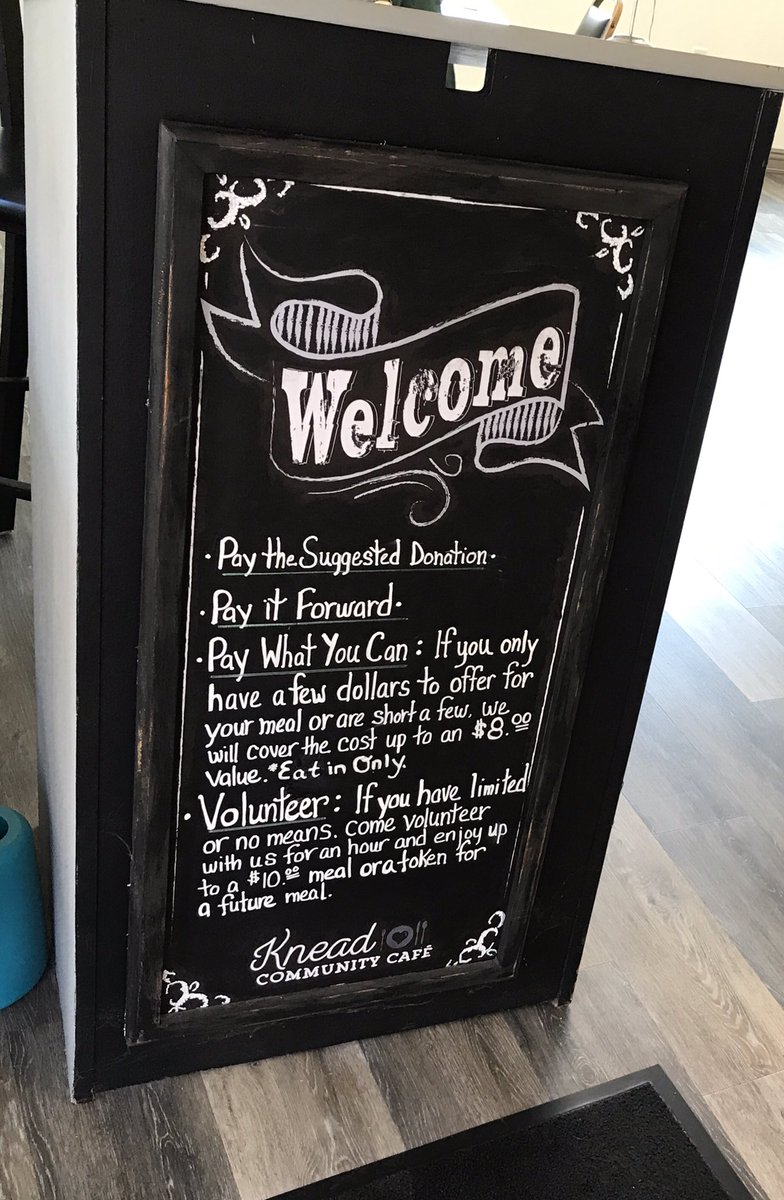 Welcome
· Pay the Suggested Donation ·
· Pay it Forward ·
· Pay What You Can : If you only
have a few dollars to offer for
your meal or are short a few, we
will cover the cost up to an $8.00
value. *Eat in Only.
· Volunteer : If you have limited
or no means. Come volunteer
with us for an hour and enjoy up
to a $10.00 meal or a token for
a future meal.
Knead
COMMUNITY CAFÉ